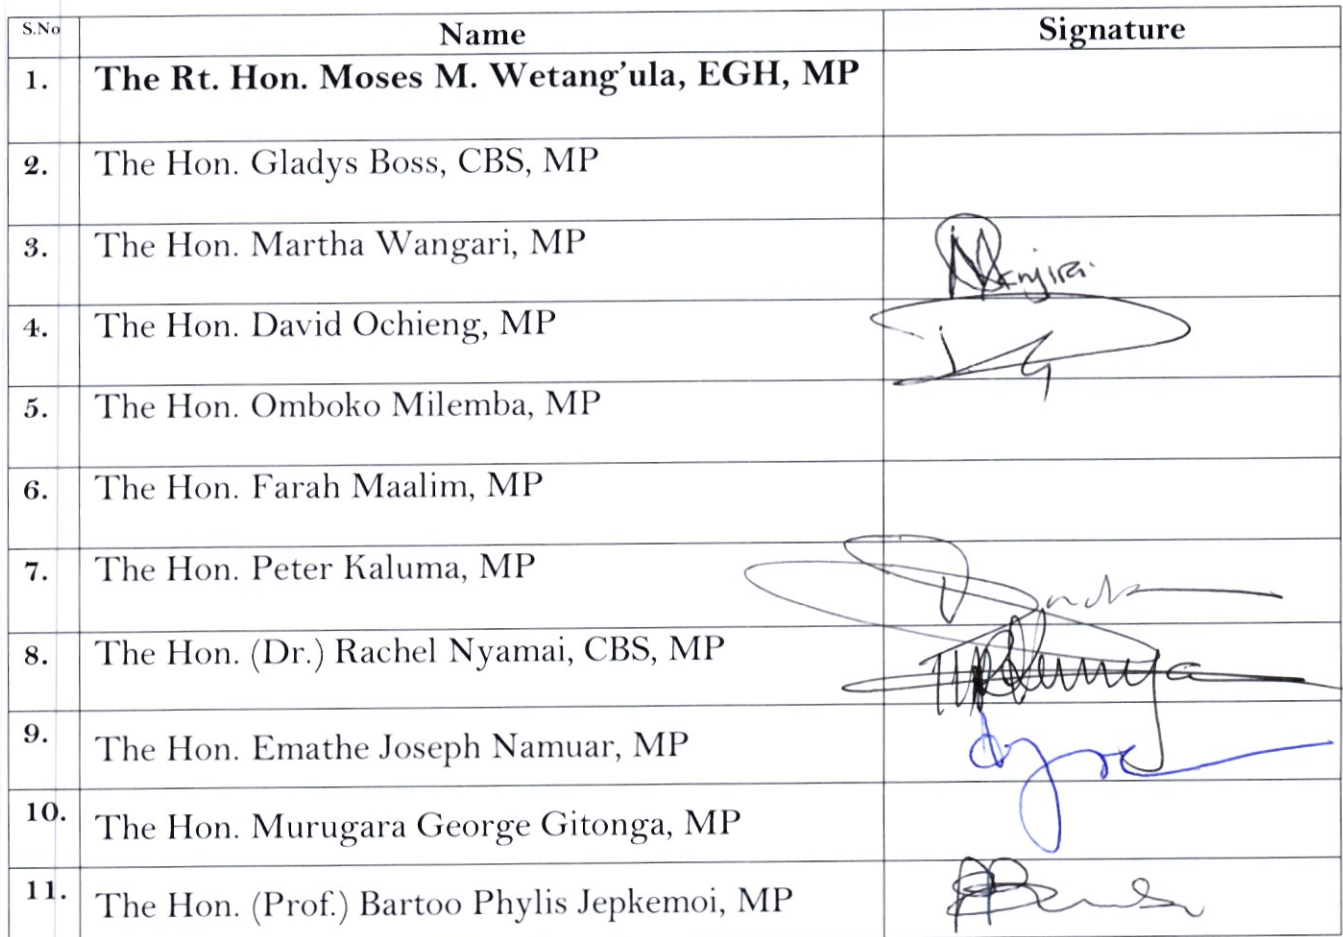 S.No Name Signature
1. The Rt. Hon. Moses M. Wetang'ula, EGH, MP
2. The Hon. Gladys Boss, CBS, MP
3. The Hon. Martha Wangari, MP
4. The Hon. David Ochieng, MP
5. The Hon. Omboko Milemba, MP
6. The Hon. Farah Maalim, MP
7. The Hon. Peter Kaluma, MP
8. The Hon. (Dr.) Rachel Nyamai, CBS, MP
9. The Hon. Emathe Joseph Namuar, MP
10. The Hon. Murugara George Gitonga, MP
11. The Hon. (Prof.) Bartoo Phylis Jepkemoi, MP